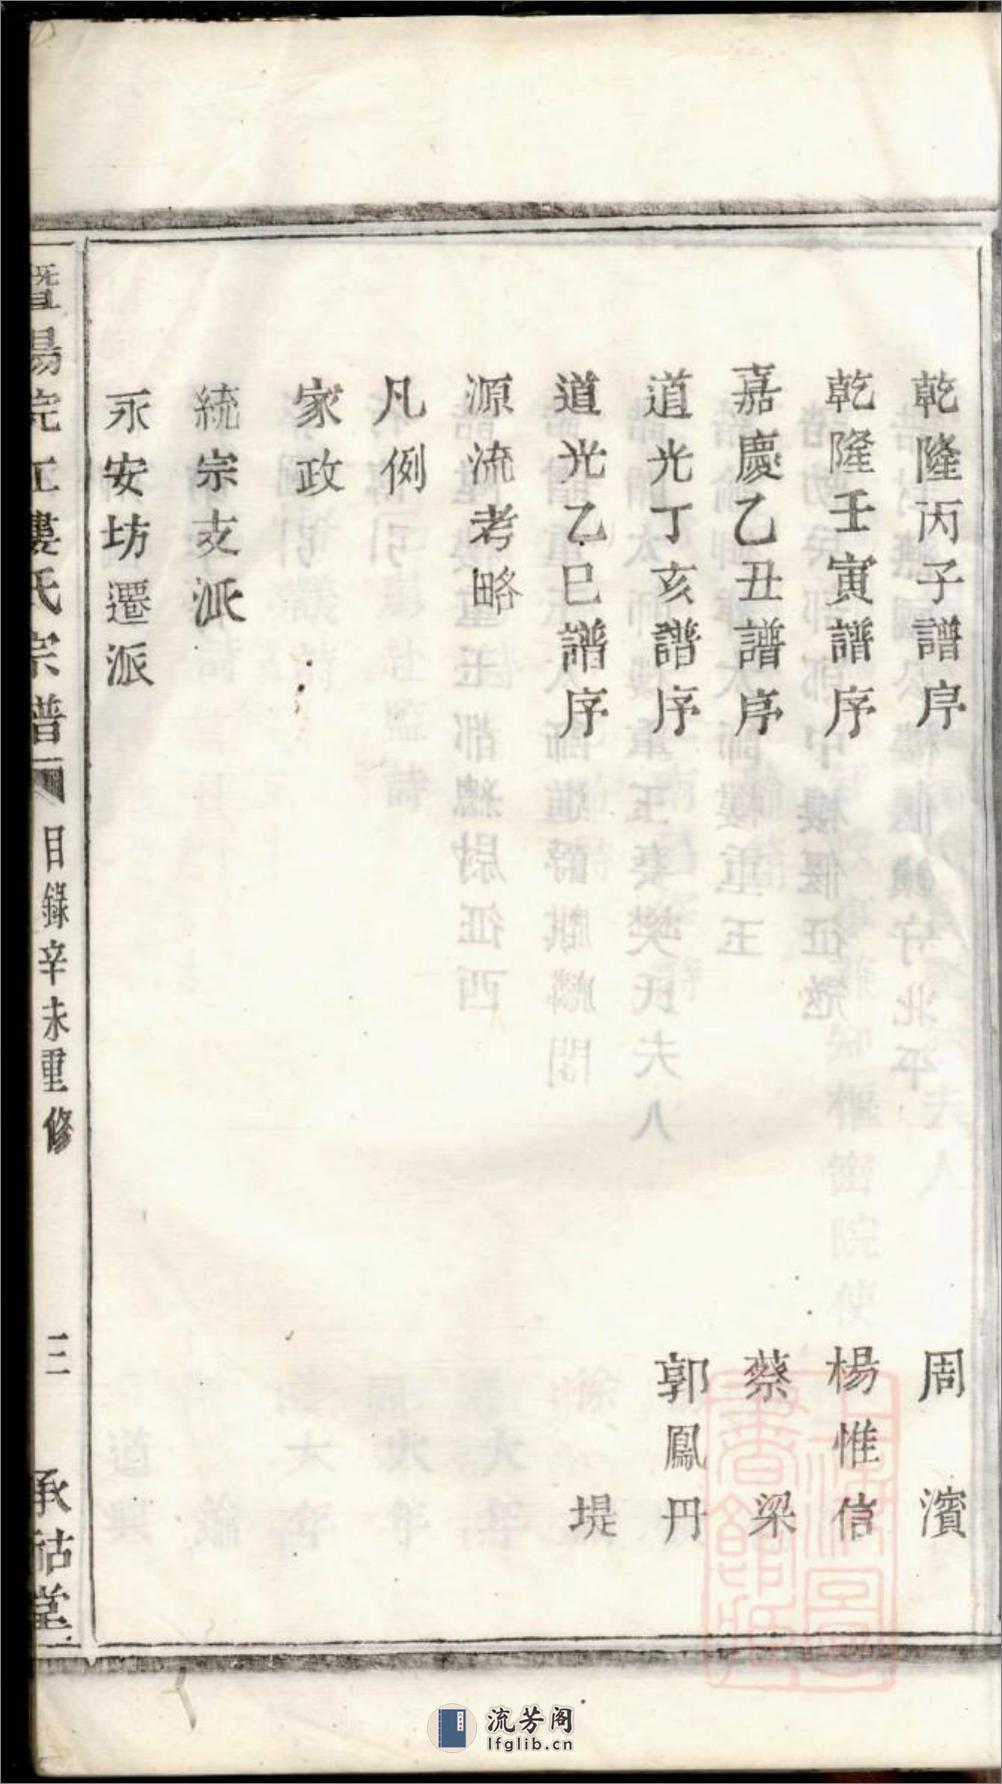 乾隆丙子譜序 周濱
乾隆壬寅譜序 楊惟信
嘉慶乙丑譜序 蔡梁
道光丁亥譜序 郭鳳丹
道光乙巳譜序 堤
源流考略
凡例
家政
統宗支派
永安坊遷派
暨陽浣江婁氏宗譜 目錄辛未重修 三 承祜堂
流芳阁
lfglib.cn